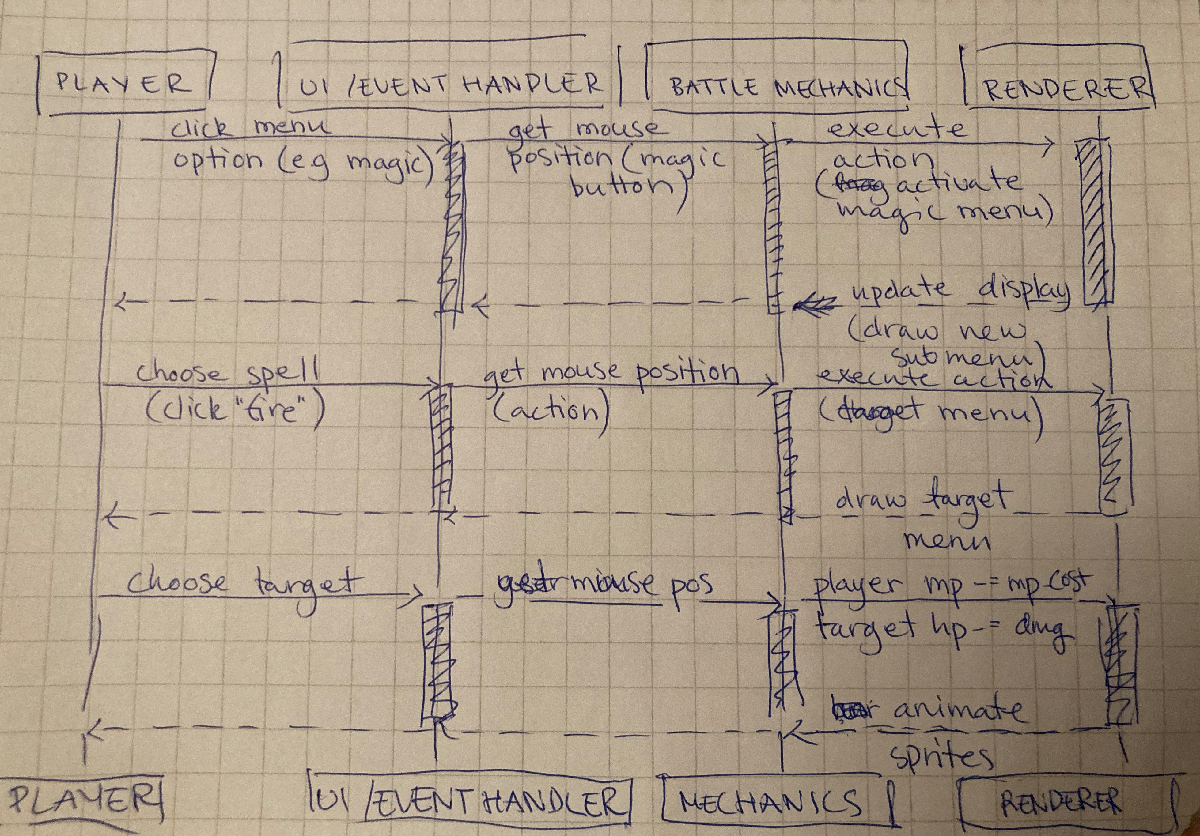 PLAYER
UI / EVENT HANDLER
BATTLE MECHANICS
RENDERER
click menu
option (eg magic)
get mouse
position (magic
button)
execute
action
(activate
magic menu)
update display
(draw new
submenu)
choose spell
(click "fire")
get mouse position
(action)
execute action
(target menu)
draw target
menu
choose target
get mouse pos
player mp -= mp cost
target hp -= dmg
animate
sprites
PLAYER
UI / EVENT HANDLER
MECHANICS
RENDERER